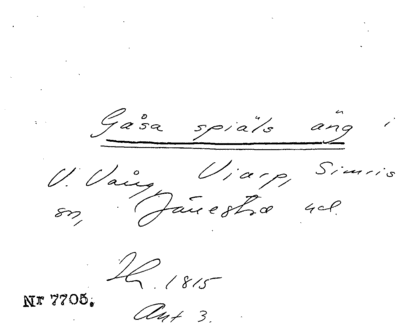 Gåsa spiäls äng i
V. Vång, Viarp, Simris
sn, Järrestad hd.
1815
Nr 7705.
Ant 3.